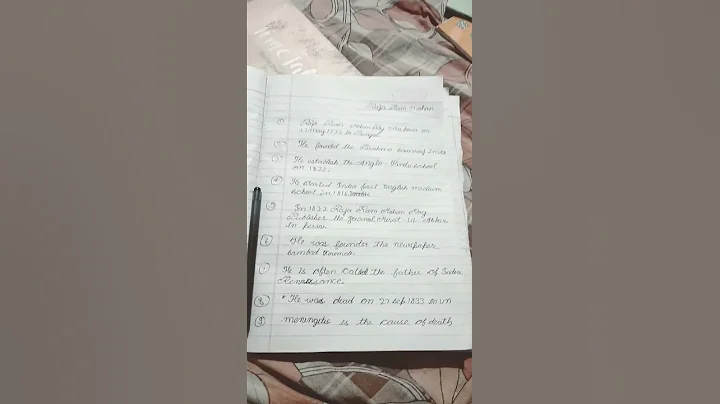 Raja Ram Mohan
① Raja Ram Mohan Roy was born on
May 1772 in Bengal
② He founded the Brahmo
③ He establish the Anglo-Hindu school
on 1822.
④ He started India first English medium
school in 1816
⑤ In 1822 Raja Ram Mohan Roy
Publisher the Journal Mirat-ul-Akbar
in
⑥ He was founder the newspaper
⑦ He is often called the father of
Renaissance.
⑧ • He was dead on 27 Sep 1833
⑨ meningitis is the cause of death